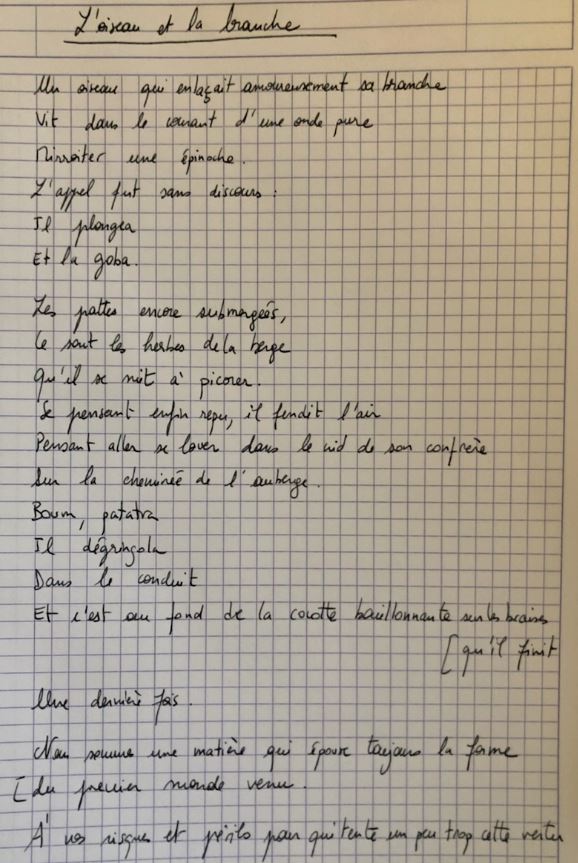 L'oiseau et la branche
Un oiseau qui enlaçait amoureusement sa branche
Vit dans le courant d'une onde pure
Mirroiter une épinoche.
L'appel fut sans discours :
Il plongea
Et la goba.
Les pattes encore submergées,
Ce sont les herbes de la berge
Qu'il se mit à picorer.
Se pensant enfin repu, il fendit l'air
Pensant aller se lover dans le nid de son confrère
Sur la cheminée de l'auberge.
Boum, patatra
Il dégringola
Dans le conduit
Et c'est au fond de la cocotte bouillonnante sur les braises
[qu'il finit
Une dernière fois.
Nous sommes une matière qui épouse toujours la forme
[du premier monde venu.
À vos risques et périls pour qui tente un peu trop cette vertu